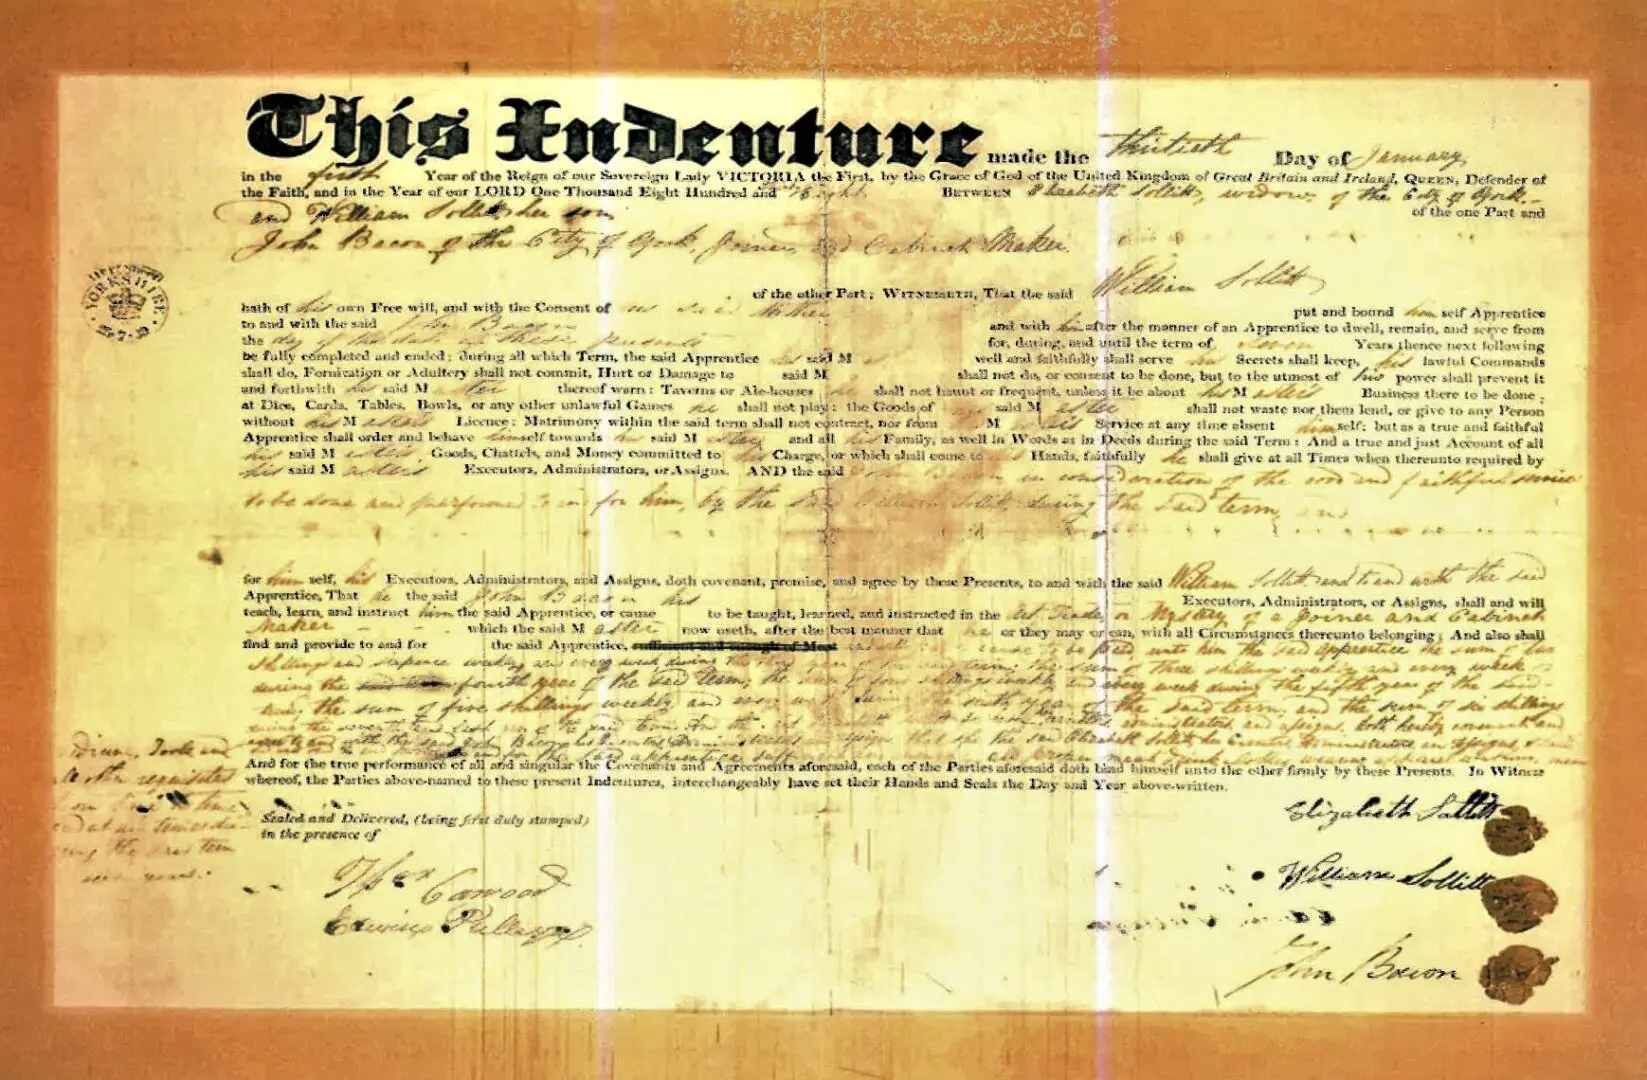 This Indenture made the thirtieth Day of January
in the first Year of the Reign of our Sovereign Lady VICTORIA the First, by the Grace of God of the United Kingdom of Great Britain and Ireland, QUEEN, Defender of
the Faith, and in the Year of our LORD One Thousand Eight Hundred and Eight. BETWEEN Elizabeth Sollitt, widow, of the City of York
and William Sollitt her son of the one Part and
John Bacon of the City of York, Joiner and Cabinet Maker.
YORKSHIRE
of the other Part; WITNESSETH, That the said William Sollitt
hath of his own Free will, and with the Consent of said Mother put and bound him self Apprentice
to and with the said John Bacon and with him after the manner of an Apprentice to dwell, remain, and serve from
the day of the date of these presents for, during, and until the term of seven Years thence next following
be fully completed and ended; during all which Term, the said Apprentice his said M well and faithfully shall serve his Secrets shall keep, his lawful Commands
shall do, Fornication or Adultery shall not commit, Hurt or Damage to said M shall not do, or consent to be done, but to the utmost of his power shall prevent it
and forthwith his said Master thereof warn: Taverns or Ale-houses he shall not haunt or frequent, unless it be about his Masters Business there to be done;
at Dice, Cards, Tables, Bowls, or any other unlawful Games he shall not play: the Goods of said Master shall not waste nor them lend, or give to any Person
without his Masters Licence; Matrimony within the said term shall not contract, nor from M Service at any time absent himself: but as a true and faithful
Apprentice shall order and behave himself towards his said Master and all his Family, as well in Words as in Deeds during the said Term: And a true and just Account of all
his said Masters Goods, Chattels, and Money committed to his Charge, or which shall come to Hands, faithfully he shall give at all Times when thereunto required by
his said Masters Executors, Administrators, or Assigns. AND the said John Bacon in consideration of the good and faithful service
to be done and performed to and for him, by the said William Sollitt, during the said term, and
for him self, his Executors, Administrators, and Assigns, doth covenant, promise, and agree by these Presents, to and with the said William Sollitt and to and with the said
Apprentice, That he the said John Bacon his Executors, Administrators, or Assigns, shall and will
teach, learn, and instruct him the said Apprentice, or cause to be taught, learned, and instructed in the Art Trade or Mystery of a Joiner and Cabinet
Maker which the said Master now useth, after the best manner that he or they may or can, with all Circumstances thereunto belonging; And also shall
find and provide to and for the said Apprentice, sufficient and enough of Meat cause to be paid unto him the said apprentice the sum of two
shillings and sixpence weekly and every week during the year of the said term; the sum of three shillings weekly and every week
during the fourth year of the said term; the sum of four shillings weekly and every week during the fifth year of the said
term; the sum of five shillings weekly and every week during the sixth year of the said term; and the sum of six shillings
administrators and assigns, doth hereby covenant and
with the said John Bacon his Executors Administrators that she the said Elizabeth Sollitt, her Executors Administrators or Assigns,
And for the true performance of all and singular the Covenants and Agreements aforesaid, each of the Parties aforesaid doth bind himself unto the other firmly by these Presents. In Witness
whereof, the Parties above-named to these present Indentures, interchangeably have set their Hands and Seals the Day and Year above-written.
Tools and
other requisites
time
and at all times du-
ring the said term
Sealed and Delivered, (being first duly stamped)
in the presence of
Cawood
Elizabeth Sollitt
William Sollitt
John Bacon